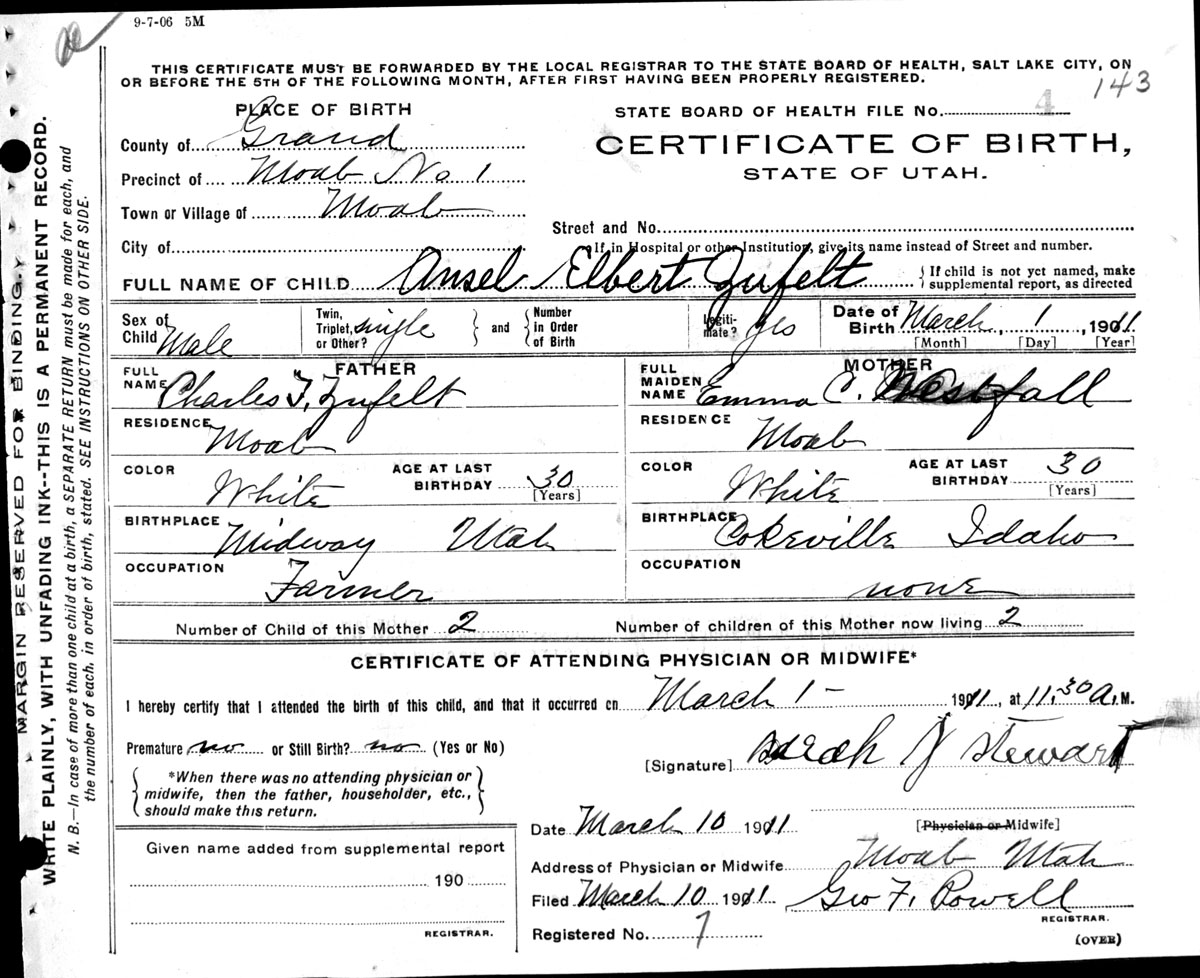 9-7-06 5M
THIS CERTIFICATE MUST BE FORWARDED BY THE LOCAL REGISTRAR TO THE STATE BOARD OF HEALTH, SALT LAKE CITY, ON
OR BEFORE THE 5TH OF THE FOLLOWING MONTH, AFTER FIRST HAVING BEEN PROPERLY REGISTERED.
143
PLACE OF BIRTH
STATE BOARD OF HEALTH FILE No. 4
County of Grand
CERTIFICATE OF BIRTH,
STATE OF UTAH.
Precinct of Moab No 1
Town or Village of Moab
Street and No.
City of
If in Hospital or other Institution, give its name instead of Street and number.
FULL NAME OF CHILD Ansel Elbert Zufelt
If child is not yet named, make
supplemental report, as directed
Sex of
Child Male
Twin,
Triplet, single
or Other?
and
Number
in Order
of Birth
Legiti-
mate? yes
Date of
Birth March, 1, 1911
[Month] [Day] [Year]
FATHER
FULL
NAME Charles F. Zufelt
RESIDENCE
Moab
COLOR
White
AGE AT LAST
BIRTHDAY 30
[Years]
BIRTHPLACE
Midway Utah
OCCUPATION
Farmer
MOTHER
FULL
MAIDEN
NAME Emma C. Westfall
RESIDENCE
Moab
COLOR
White
AGE AT LAST
BIRTHDAY 30
[Years]
BIRTHPLACE
Cokeville Idaho
OCCUPATION
none
Number of Child of this Mother 2
Number of children of this Mother now living 2
CERTIFICATE OF ATTENDING PHYSICIAN OR MIDWIFE*
I hereby certify that I attended the birth of this child, and that it occurred on March 1- 1911, at 11,30 A, M.
Premature no or Still Birth? no (Yes or No)
*When there was no attending physician or
midwife, then the father, householder, etc.,
should make this return.
[Signature] Sarah J Stewart
Date March 10 1911
[Physician or Midwife]
Given name added from supplemental report
190
REGISTRAR.
Address of Physician or Midwife Moab Utah
Filed March 10 1911 Geo F. Powell
REGISTRAR.
Registered No. 7
(OVER)
MARGIN RESERVED FOR BINDING.
WRITE PLAINLY, WITH UNFADING INK--THIS IS A PERMANENT RECORD.
N. B.—In case of more than one child at a birth, a SEPARATE RETURN must be made for each, and
the number of each, in order of birth, stated. SEE INSTRUCTIONS ON OTHER SIDE.